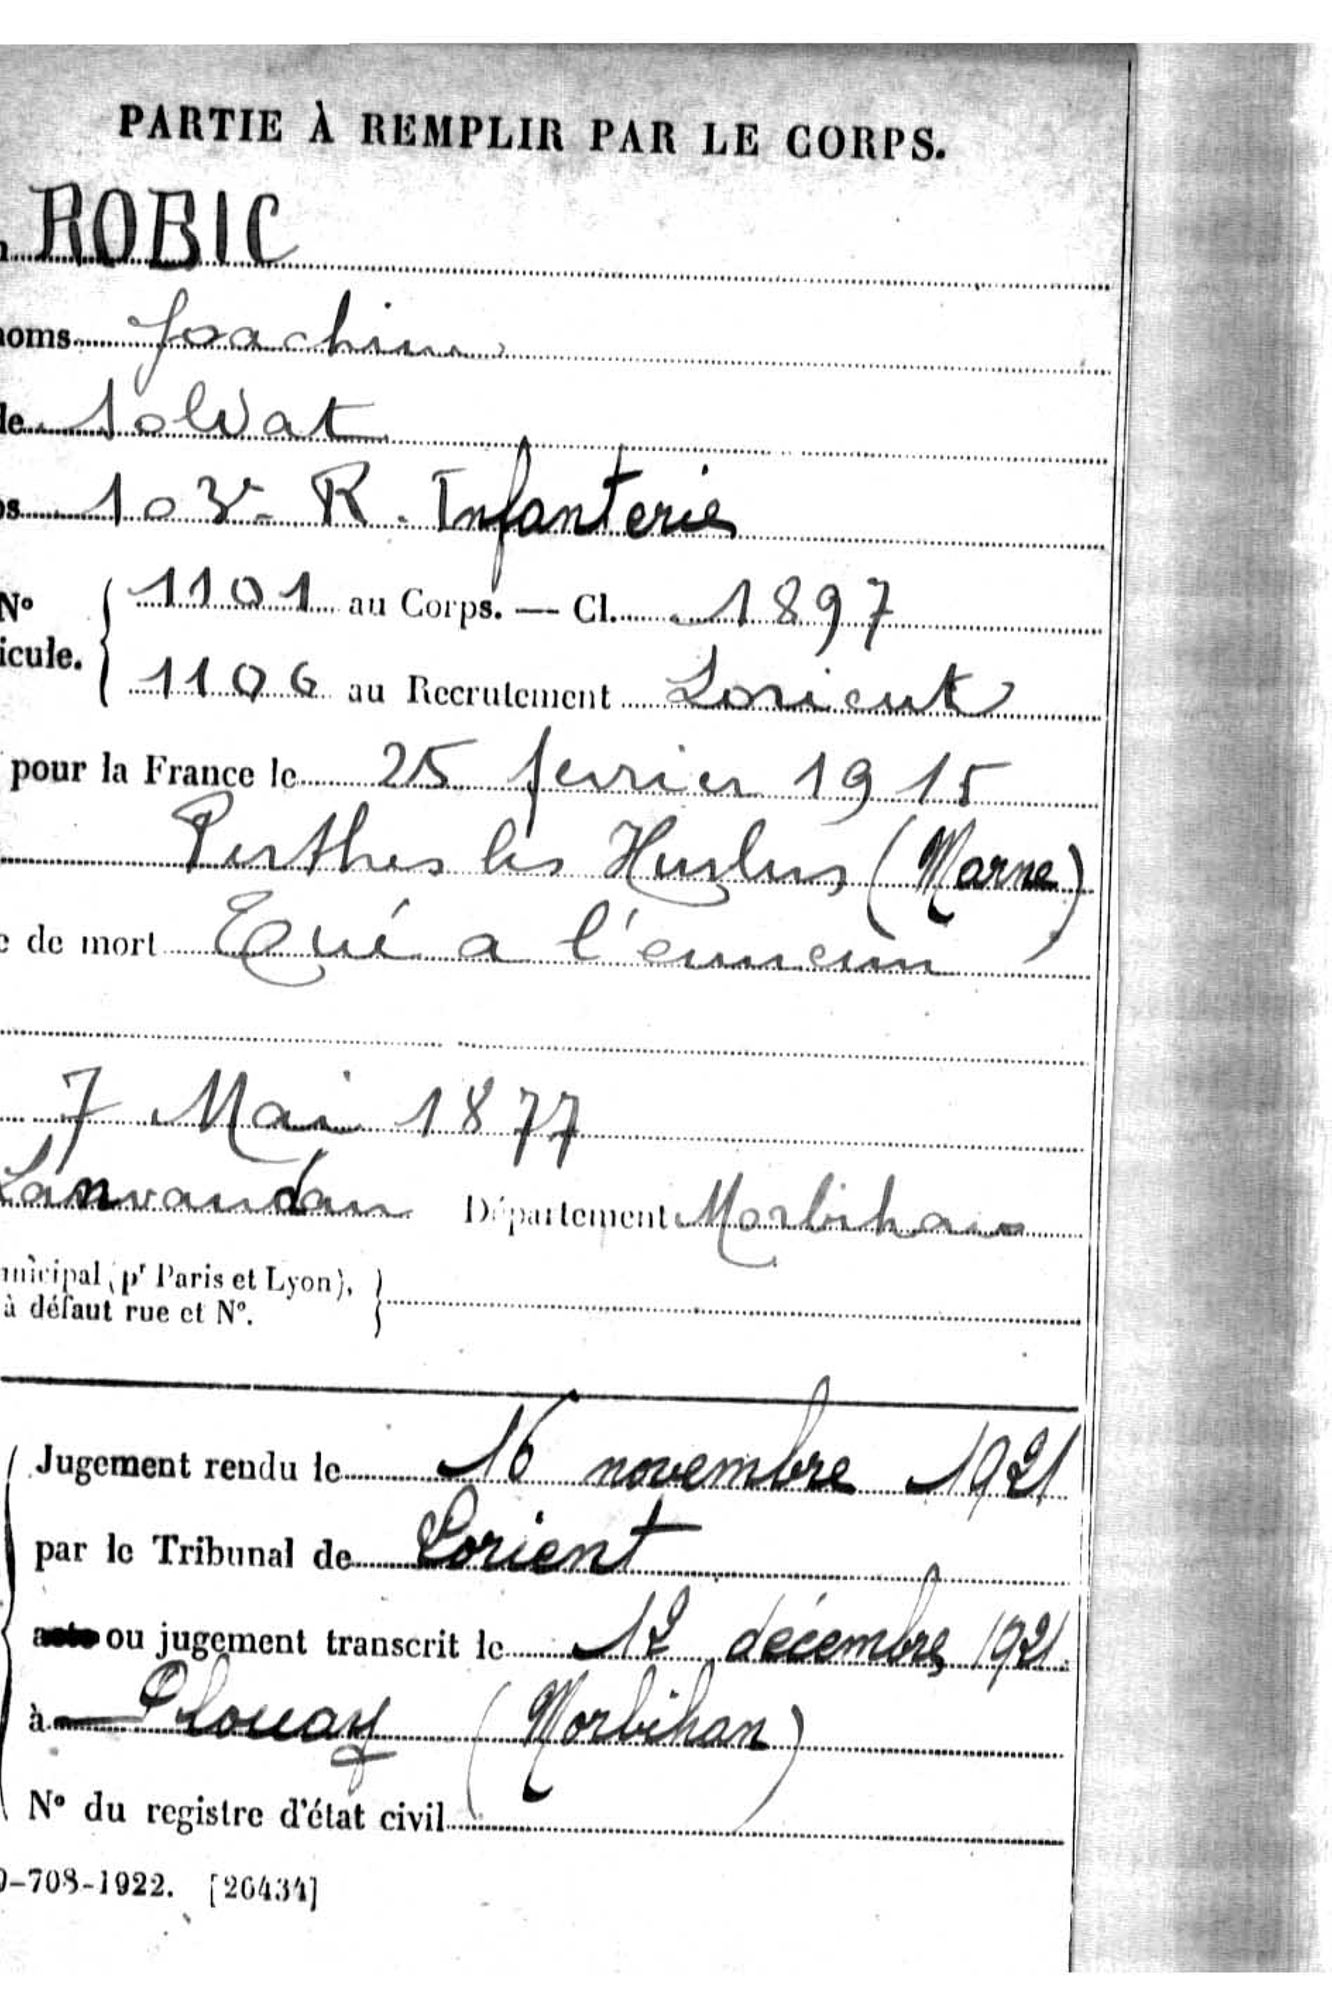 PARTIE À REMPLIR PAR LE CORPS.
ROBIC
noms Joachim
de Soldat
ps 103e R. Infanterie
No 1101 au Corps. — Cl. 1897
icule. 1106 au Recrutement Lorient
pour la France le 25 fevrier 1915
Perthes les Hurlus (Marne)
e de mort Tué a l'ennemi
7 Mai 1877
Lanvaudan Département Morbihan
micipal (pr Paris et Lyon),
à défaut rue et No.
Jugement rendu le 16 novembre 1921
par le Tribunal de Lorient
acte ou jugement transcrit le 12 décembre 1921
à Plouay (Morbihan)
No du registre d'état civil
0-708-1922. [26434]